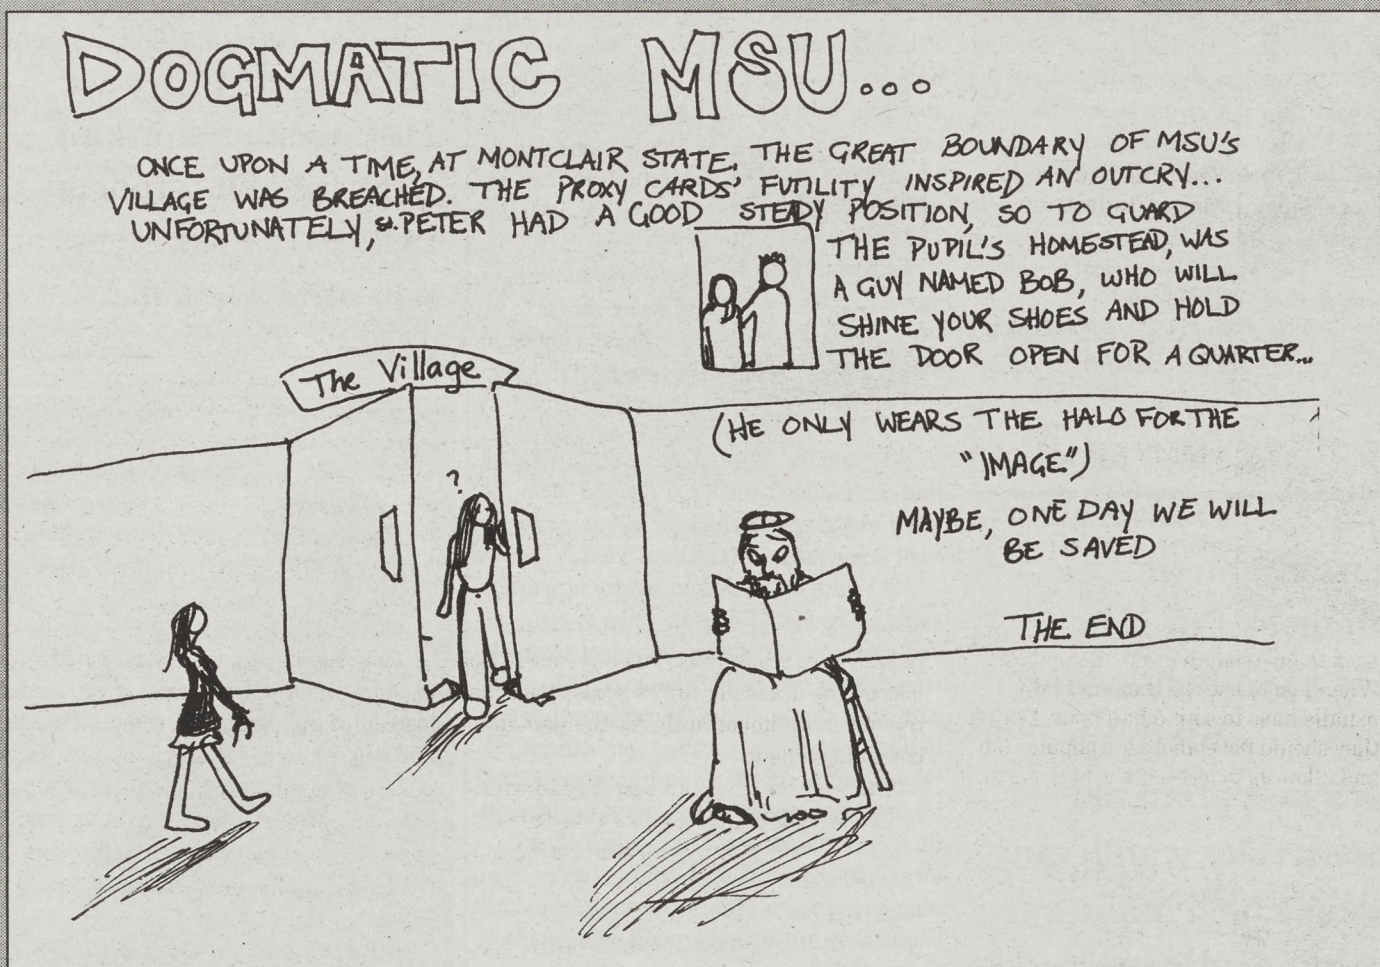 DOGMATIC MSU...
ONCE UPON A TIME, AT MONTCLAIR STATE, THE GREAT BOUNDARY OF MSU'S
VILLAGE WAS BREACHED. THE PROXY CARDS' FUTILITY INSPIRED AN OUTCRY...
UNFORTUNATELY, St. PETER HAD A GOOD STEADY POSITION, SO TO GUARD
THE PUPIL'S HOMESTEAD, WAS
A GUY NAMED BOB, WHO WILL
SHINE YOUR SHOES AND HOLD
THE DOOR OPEN FOR A QUARTER...
The Village
(HE ONLY WEARS THE HALO FOR THE
"IMAGE")
?
MAYBE, ONE DAY WE WILL
BE SAVED
THE END